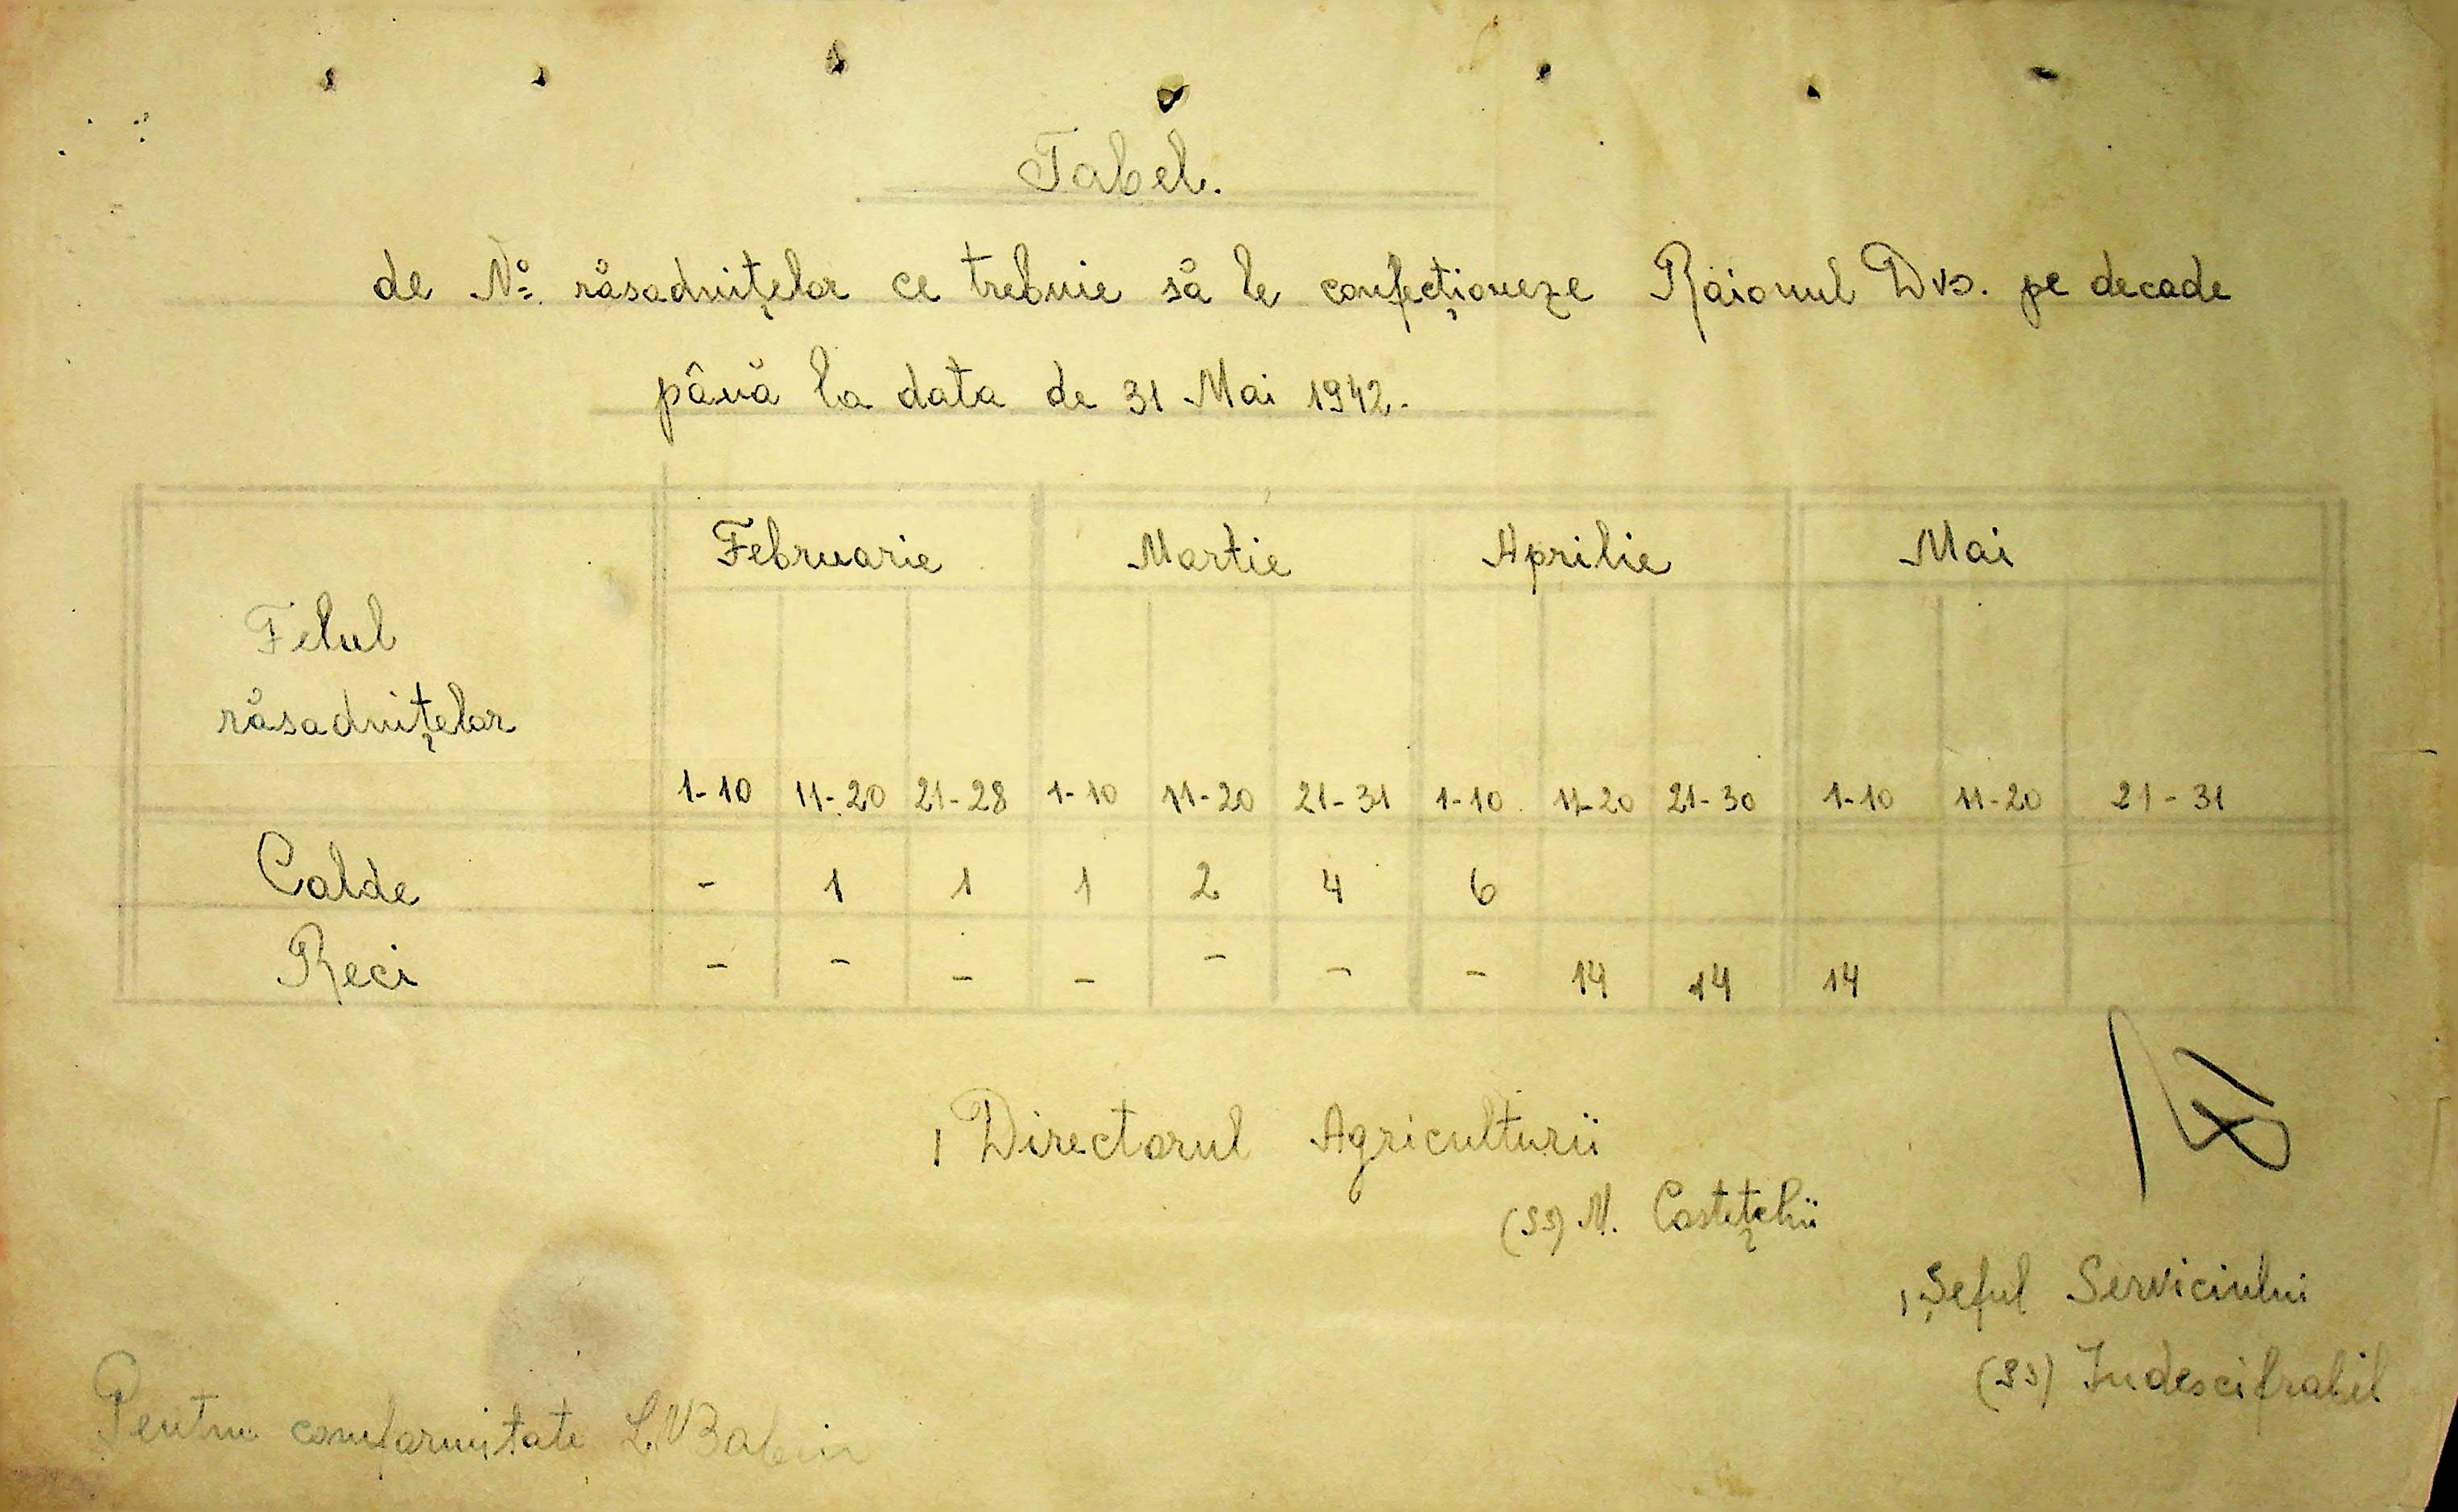 Tabel.
de No. răsadnițelor ce trebuie să le confecționeze Raionul Dvs. pe decade
până la data de 31 Mai 1942.
Februarie Martie Aprilie Mai
Felul
răsadnițelor
1-10 11-20 21-28 1-10 11-20 21-31 1-10 11-20 21-30 1-10 11-20 21-31
Calde - 1 1 1 2 4 6
Reci - - - - - - - 14 14 14
Directorul Agriculturii
(ss) N.
Șeful Serviciului
(ss) Indescifrabil
Pentru conformitate